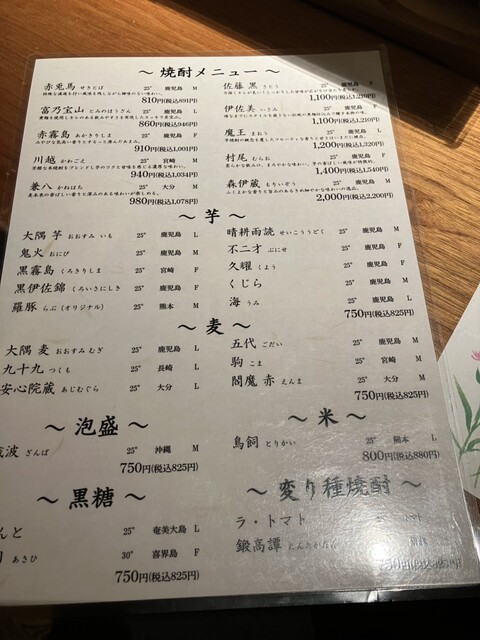 ～ 焼酎メニュー ～
赤兎馬 せきとば 25° 鹿児島 M
810円(税込891円)
富乃宝山 とみのほうざん 25° 鹿児島 L
860円(税込946円)
赤霧島 あかきりしま 25° 鹿児島 F
910円(税込1,001円)
川越 かわごえ 25° 宮崎 M
940円(税込1,034円)
兼八 かねはち 25° 大分 M
980円(税込1,078円)
佐藤 黒 さとう 25° 鹿児島 F
1,100円(税込1,210円)
伊佐美 いさみ 25° 鹿児島 F
1,100円(税込1,210円)
魔王 まおう 25° 鹿児島 L
1,200円(税込1,320円)
村尾 むらお 25° 鹿児島 F
1,400円(税込1,540円)
森伊蔵 もりいぞう 25° 鹿児島 M
2,000円(税込2,200円)
～ 芋 ～
大隅 芋 おおすみ いも 25° 鹿児島 L
鬼火 おにび 25° 鹿児島 M
黒霧島 くろきりしま 25° 宮崎 F
黒伊佐錦 くろいさにしき 25° 鹿児島 F
羅豚 らぶ (オリジナル) 25° 熊本 M
晴耕雨読 せいこううどく 25° 鹿児島 M
不二才 ぶにせ 25° 鹿児島 F
久耀 くよう 25° 鹿児島 F
くじら 25° 鹿児島 M
海 うみ 25° 鹿児島 L
750円(税込825円)
～ 麦 ～
大隅 麦 おおすみ むぎ 25° 鹿児島 L
九十九 つくも 25° 長崎 L
安心院蔵 あじむぐら 25° 大分 L
五代 ごだい 25° 鹿児島 M
駒 こま 25° 宮崎 M
閻魔 赤 えんま 25° 大分 M
750円(税込825円)
～ 泡盛 ～
波 ざんぱ 25° 沖縄 M
750円(税込825円)
～ 米 ～
鳥飼 とりかい 25° 熊本 L
800円(税込880円)
～ 黒糖 ～
んと 25° 奄美大島 L
あさひ 30° 喜界島 F
750円(税込825円)
～ 変り種焼酎 ～
ラ・トマト 25° トマト
鍛高譚 たんたかたん
750円(税込825円)